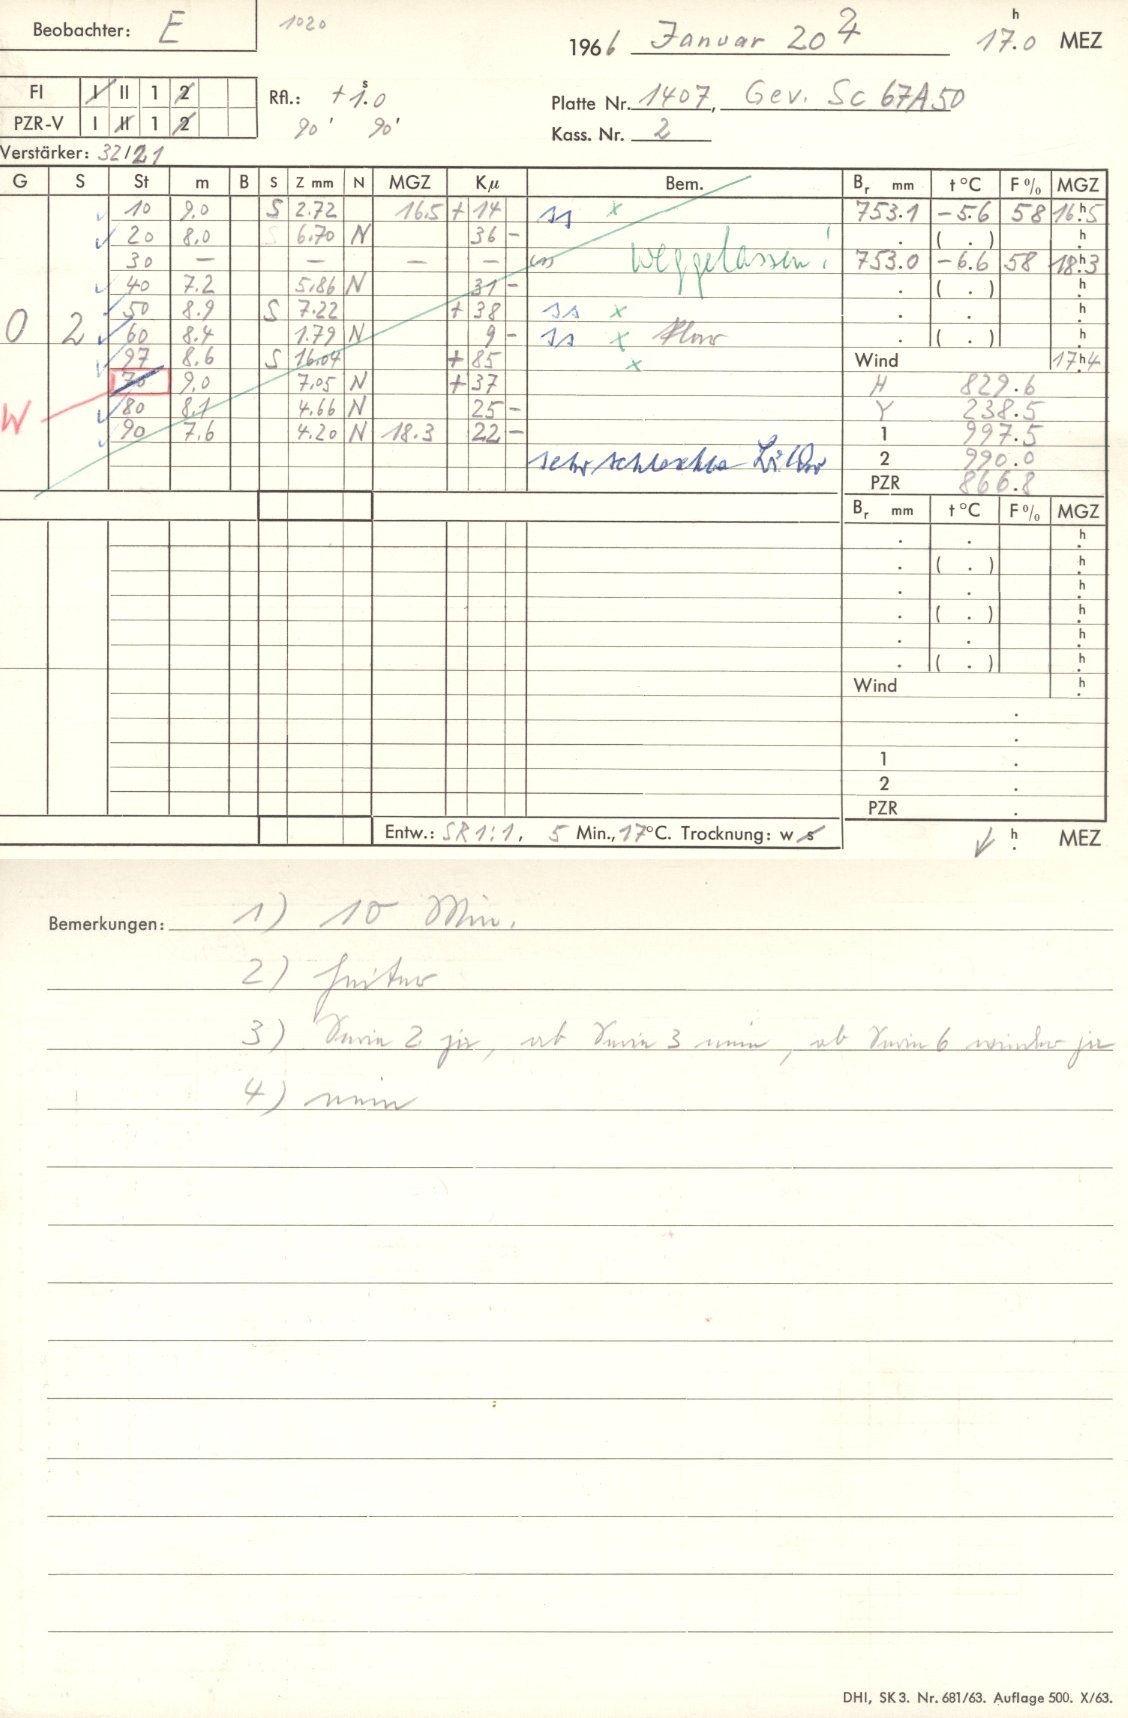 Beobachter: E
1020
1966 Januar 20 17.0 h MEZ
FI I II 1 2
PZR-V I II 1 2
Rfl.: + 1.0 s
90' 90'
Platte Nr. 1407, Gev. Sc 67A50
Kass. Nr. 2
Verstärker: 32/21
G S St m B S Z mm N MGZ Kμ Bem. Br mm t °C F % MGZ
10 9.0 S 2.72 16.5 + 14 ss x 753.1 -5.6 58 16.5 h
20 8.0 S 6.70 N 36 - . ( . ) h
30 — — — — — weggelassen! 753.0 -6.6 58 18.3 h
40 7.2 5.86 N 31 - . ( . ) h
50 8.9 S 7.22 + 38 ss x . . h
0 2 60 8.4 1.79 N 9 - ss x . ( . ) h
97 8.6 S 16.04 + 85 x Wind 17.4 h
70 9.0 7.05 N + 37 H 829.6
W 80 8.1 4.66 N 25 - Y 238.5
90 7.6 4.20 N 18.3 22 - 1 997.5
sehr schlechte 2 990.0
PZR 866.8
Br mm t °C F % MGZ
. . h
. ( . ) h
. . h
. ( . ) h
. . h
. ( . ) h
Wind h
.
.
1 .
2 .
PZR .
Entw.: SR 1:1, 5 Min., 17 °C. Trocknung: w s
h MEZ
Bemerkungen: 1) 10 Min.
2) heiter
3) Serie 2 ja, ab Serie 3 nein, ab Serie 6 wieder ja
4) nein
DHI, SK 3. Nr. 681/63. Auflage 500. X/63.